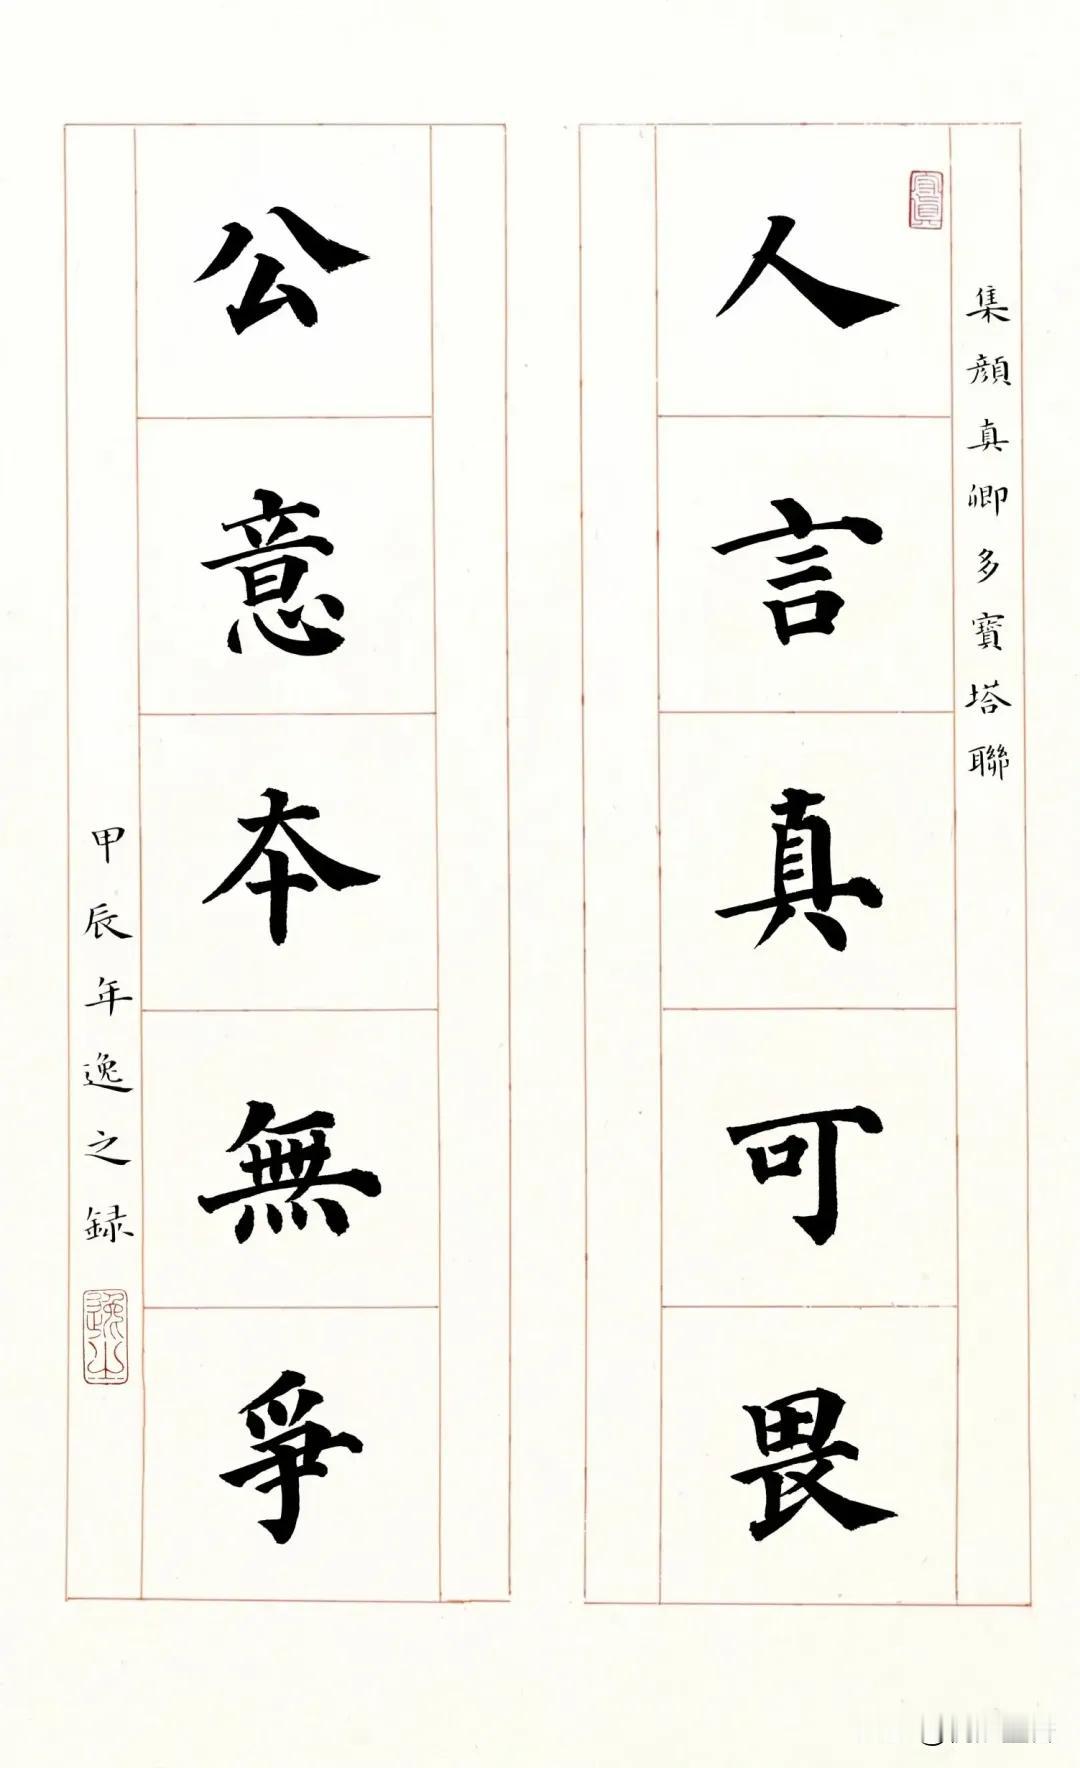 集顔真卿多寶塔聯
人言真可畏
公意本無爭
甲辰年逸之録
逸之